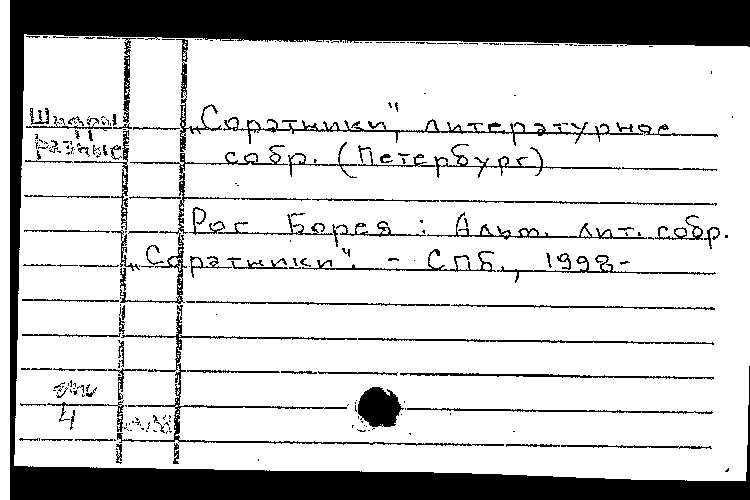 Шифры
разные
„Соратники", литературное
собр. (Петербург)
Рог Борея : Альм. лит. собр.
„Соратники". - СПб., 1998-
4